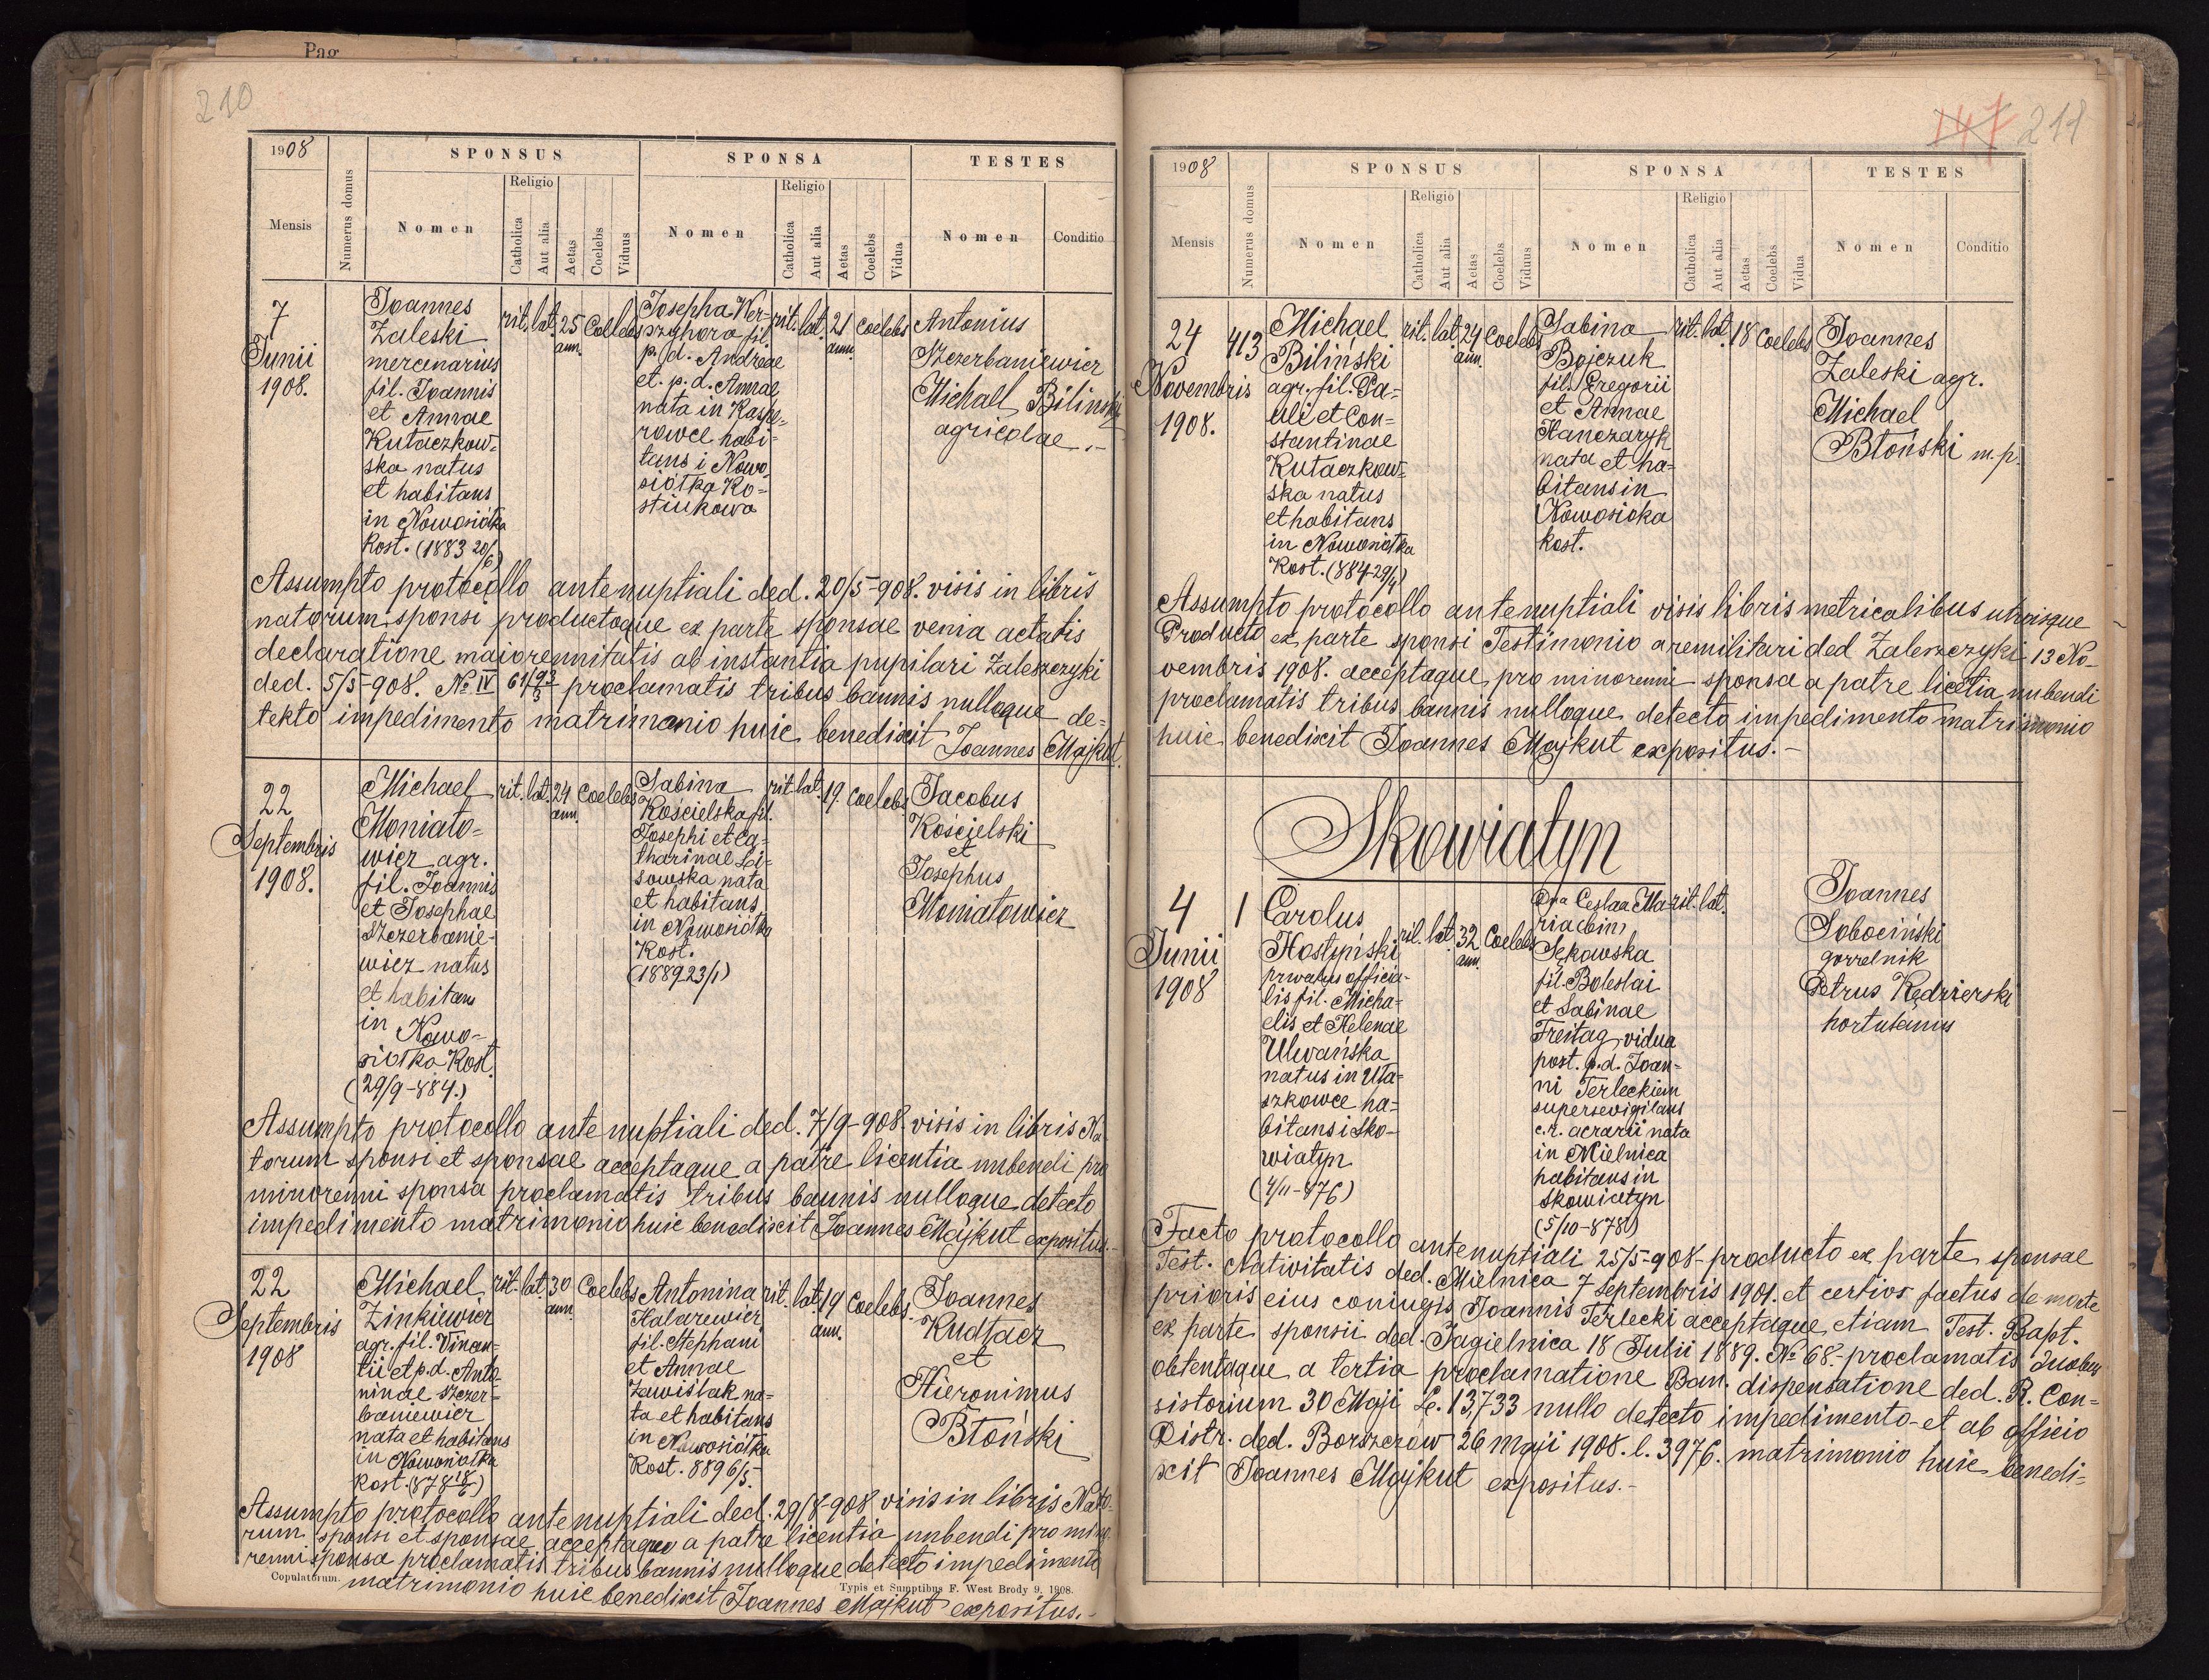 Pag
210
1908
SPONSUS
SPONSA
TESTES
Mensis
Numerus domus
Nomen
Religio
Catholica
Aut alia
Aetas
Coelebs
Viduus
Nomen
Religio
Catholica
Aut alia
Aetas
Coelebs
Vidua
Nomen
Conditio
7
Junii
1908.
Joannes
Zaleski
mercenarius
fil. Joannis
et Annae
Kutaczkow-
ska natus
et habitans
in Nowosiółka
Kost. (1883 20/6)
rit. lat. 25 Coelebs
ann.
Josepha Wer-
pzyhora fil.
p. d. Andreae
et p. d. Annae
nata in Kaspe-
rowce habi-
tans i Nowo
siółka Ko-
stiukowa
rit. lat. 21 coelebs
ann.
Antonius
Szczerbaniewicz
Michael Biliński
agricolae .-
Assumpto protocollo antenuptiali ded. 20/5-908. visis in libris
natorum sponsi productoque ex parte sponsae venia aetatis
declaratione maiorennitatis ab instantia pupilari Zaleszczyki
ded. 5/5-908. No IV 61/93/5 proclamatis tribus bannis nulloque de-
tekto impedimento matrimonio huic benedixit Joannes Majkut.
22
Septembris
1908.
Michael
Moniato-
wicz agr.
fil. Joannis
et Josephae
Szczerbanie-
wicz natus
et habitans
in Nowo-
siółka Kost.
(29/9-884.)
rit. lat. 24 coelebs
ann.
Sabina
Kościelska fil.
Josephi et Ca-
tharinae Li-
sowska nata
et habitans
in Nowosiółka
Kost.
(1889 23/1)
rit. lat. 19. coelebs
Jacobus
Kościelski
et
Josephus
Moniatowicz
Assumpto protocollo antenuptiali ded. 7/9-908. visis in libris Na-
torum sponsi et sponsae acceptaque a patre licentia nubendi pro
minorenni sponsa proclamatis tribus bannis nulloque detecto
impedimento matrimonio huic benedixit Joannes Majkut expositus.-
22
Septembris
1908
Michael
Zinkiewicz
agr. fil. Vincen-
tii et p. d. Anto-
ninae Szczer-
baniewicz
nata et habitans
in Nowosiółka
Kost. (878 18/6)
rit. lat. 30 Coelebs
ann.
Antonina
Halarewicz
fil. Stephani
et Annae
Zawiślak na-
ta et habitans
in Nowosiółka
Kost. 889 6/5.
rit. lat. 19 coelebs
ann.
Joannes
Kudłacz
et
Hieronimus
Błoński
Assumpto protocollo antenuptiali ded. 29/8-908 visis in libris Nato-
rum sponsi et sponsae acceptaque a patre licentia nubendi pro mino-
renni sponsa proclamatis tribus bannis nulloque detecto impedimento
matrimonio huic benedixit Joannes Majkut expositus.-
Copulatorum.
Typis et Sumptibus F. West Brody 9. 1908.
147 211
1908
SPONSUS
SPONSA
TESTES
Mensis
Numerus domus
Nomen
Religio
Catholica
Aut alia
Aetas
Coelebs
Viduus
Nomen
Religio
Catholica
Aut alia
Aetas
Coelebs
Vidua
Nomen
Conditio
24
Novembris
1908.
413
Michael
Biliński
agr. fil. Pa-
uli et Con-
stantinae
Kutaczkow-
ska natus
et habitans
in Nowosiółka
Kost. (884-29/4)
rit. lat. 24 coelebs
ann.
Sabina
Bojczuk
fil. Gregorii
et Annae
Hanczaryk
nata et ha-
bitans in
Nowosioka
kost.
rit. lat. 18 coelebs
Joannes
Zaleski agr.
Michael
Błoński m. p.
Assumpto protocollo antenuptiali visis libris metricalibus utriusque
Producto ex parte sponsi Testimonio a re militari ded Zaleszczyki 13 No-
vembris 1908. acceptaque pro minorenni sponsa a patre licetia nubendi
proclamatis tribus bannis nulloque detecto impedimento matrimonio
huic benedixit Joannes Majkut expositus.-
Skowiatyn
4
Junii
1908
1
Carolus
Hostyński
privatus officia-
lis fil. Micha-
elis et Helenae
Ulwańska
natus in Uła-
szkowce ha-
bitans i Sko-
wiatyn
(4/11-876)
rit. lat. 32 Coelebs
ann.
Dna Ceslaa Ma-
ria abin,
Sękowska
fil. Boleslai
et Sabinae
Freitag, vidua
post. p. d. Joan-
ni Terleckiem
supersevigilans
c. r. aerarii nata
in Mielnica
habitans in
Skowiatyn
(5/10-878)
rit. lat.
Joannes
Sobociński
gorzelnik
Petrus Kędzierski
hortulanus
Facto protocollo antenuptiali 25/5-908- producto ex parte sponsae
Test. Nativitatis ded. Mielnica 7 Septembris 1901. et certior factus de morte
prioris eius coniugis Joannis Terlecki acceptaque etiam Test. Bapt.
ex parte sponsii ded. Jagielnica 18 Julii 1889. No 68.- proclamatis duobus
obtentaque a tertia proclamatione Ban. dispensatione ded. R. Con-
sistorium 30 Maji L. 13,733 nullo detecto impedimento- et ab officio
Distr. ded. Borszczów 26 maji 1908. l. 3976. matrimonio huic benedi-
xit Joannes Majkut expositus.-